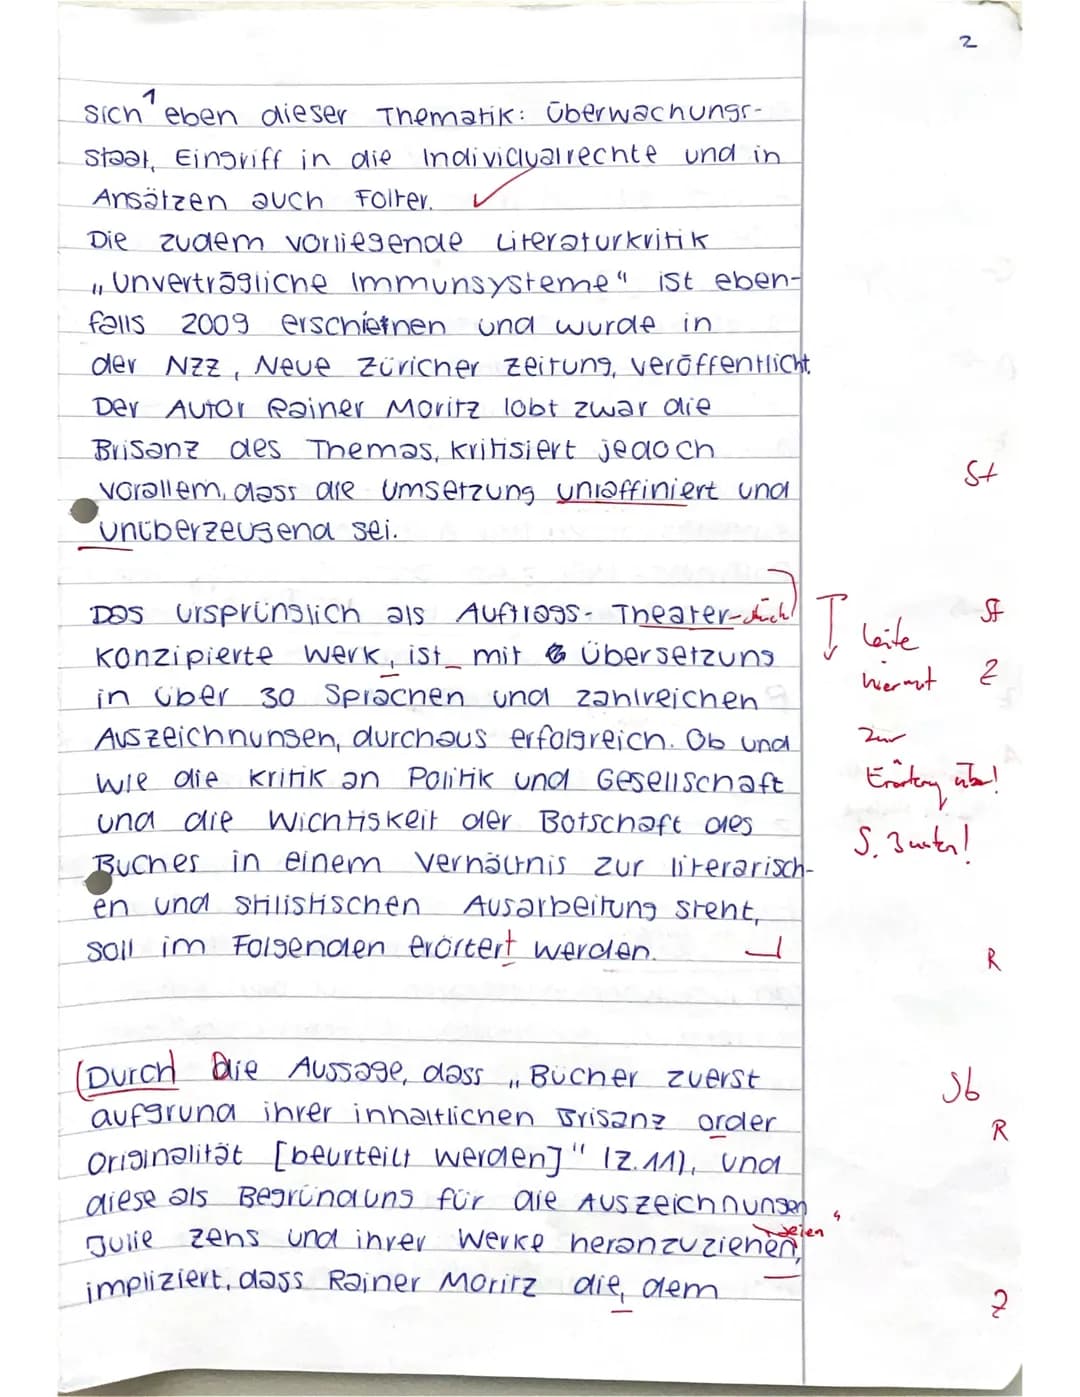 2
sich 1 eben dieser Thematik: Überwachungs-
staat, Eingriff in die Individualrechte und in
Ansätzen auch Folter.
Die zudem vorliegende Literaturkritik
„Unverträgliche Immunsysteme" ist eben-
falls 2009 erschienen und wurde in
der NZZ, Neue Züricher Zeitung, veröffentlicht.
Der Autor Rainer Moritz lobt zwar die
Brisanz des Themas, kritisiert jedoch
vorallem, dass die Umsetzung unraffiniert und
St
unüberzeugend sei.
Das ursprünglich als Auftrags- Theater-stück
St
konzipierte Werk, ist mit Übersetzung
Z
in über 30 Sprachen und zahlreichen
Auszeichnungen, durchaus erfolgreich. Ob und
wie die Kritik an Politik und Gesellschaft
und die Wichtigkeit der Botschaft des
Buches in einem Verhältnis zur literarisch-
en und stilistischen Ausarbeitung steht,
soll im Folgenden erörtert werden.
R
Leite
hiermit
zur
Erörterung über!
S. Bunten!
(Durch Die Aussage, dass „Bücher zuerst
Sb
aufgrund ihrer inhaltlichen Brisanz order
R
Originalität [beurteilt werden]" (Z.11), und
diese als Begründung für die Auszeichnungen
seien
Julie Zehs und ihrer Werke heranzuziehen,
impliziert, dass Rainer Moritz die, dem
Z